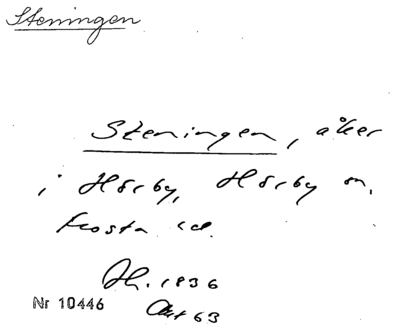 Steningen
Steningen, åker
i Hörby, Hörby sn,
Frosta hd.
Sh. 1836
Nr 10446 Akt 63